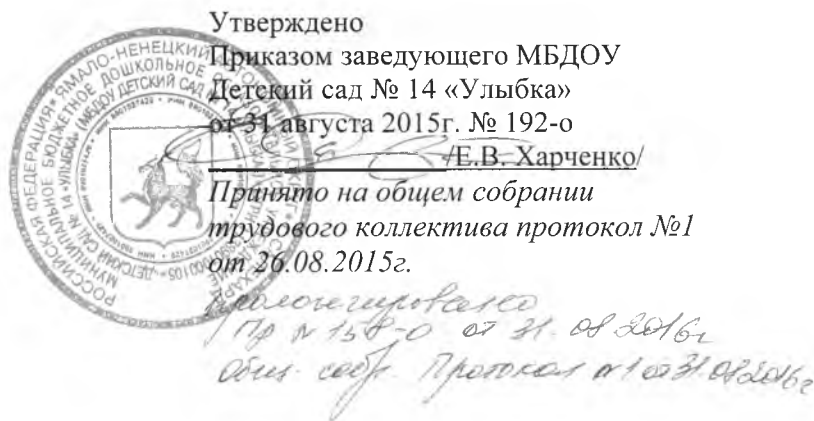 Утверждено
Приказом заведующего МБДОУ
Детский сад № 14 «Улыбка»
от 31 августа 2015г. № 192-о
/Е.В. Харченко/
Принято на общем собрании
трудового коллектива протокол №1
от 26.08.2015г.
пролонгировано
Пр № 158-О от 31.08.2016г
общ. собр. Протокол №1 от 31.08.2016г
РОССИЙСКАЯ ФЕДЕРАЦИЯ * ЯМАЛО-НЕНЕЦКИЙ
МУНИЦИПАЛЬНОЕ БЮДЖЕТНОЕ ДОШКОЛЬНОЕ
ДЕТСКИЙ САД № 14 «УЛЫБКА» (МБДОУ ДЕТСКИЙ САД